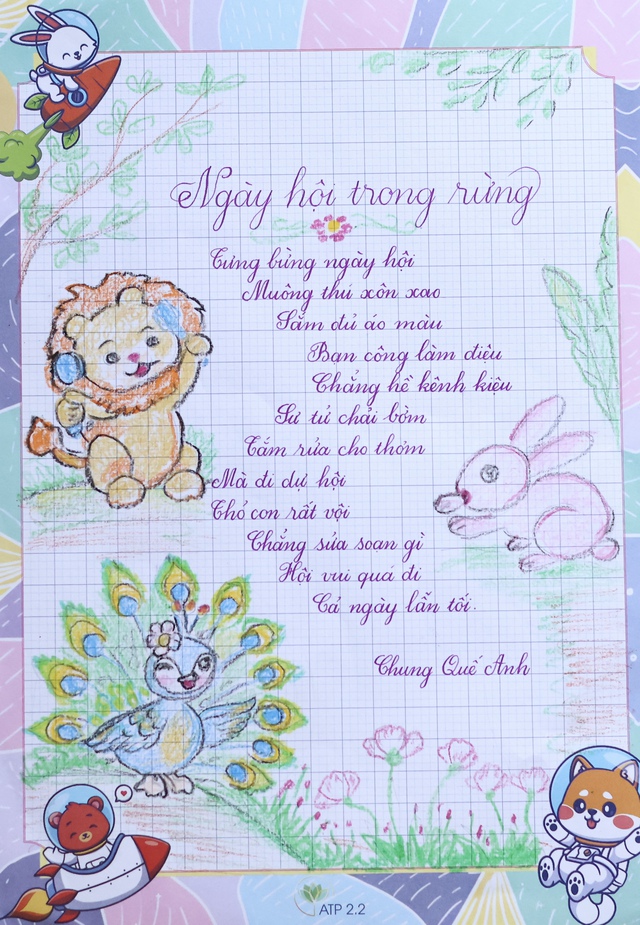 Ngày hội trong rừng
Tưng bừng ngày hội
Muông thú xôn xao
Sắm đủ áo màu
Bạn công làm điệu
Chẳng hề kênh kiệu
Sư tử chải bờm
Tắm rửa cho thơm
Mà đi dự hội
Thỏ con rất vội
Chẳng sửa soạn gì
Hội vui quá đi
Cả ngày lẫn tối.
Chung Quế Anh
ATP 2.2